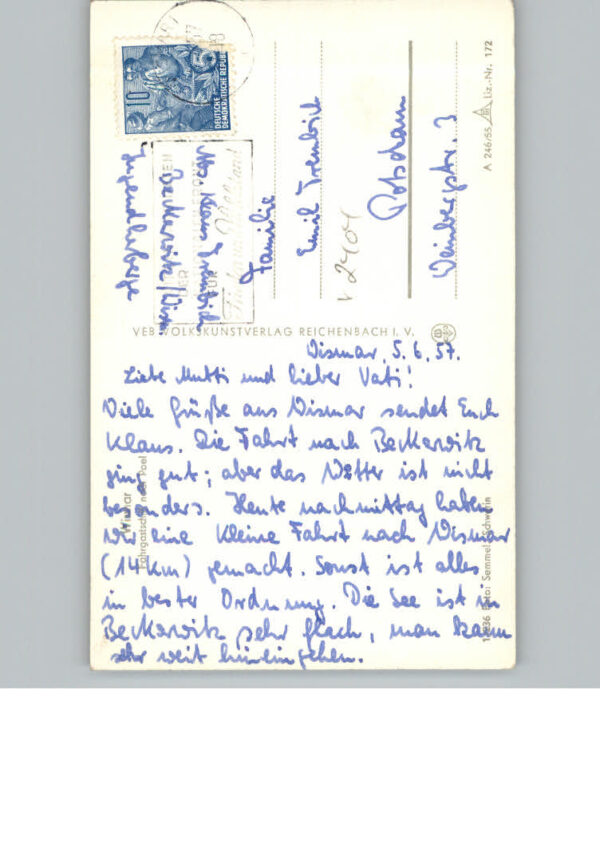 10
5
DEUTSCHE
DEMOKRATISCHE REPUBLIK
Abs. Klaus Trembich
Beckerwitz/Wismar
Jugendherberge
Familie
Emil Trembich
Potsdam
Weinbergstr. 3
V 2404
A 246/55 Liz.-Nr. 172
VEB VOLKSKUNSTVERLAG REICHENBACH I. V.
Wismar, 5.6.57.
Liebe Mutti und lieber Vati!
Viele Grüße aus Wismar sendet Euch
Klaus. Die Fahrt nach Beckerwitz
ging gut; aber das Wetter ist nicht
besonders. Heute nachmittag haben
wir eine kleine Fahrt nach Wismar
(14 km) gemacht. Sonst ist alles
in bester Ordnung. Die See ist in
Beckerwitz sehr flach, man kann
sehr weit hineingehen.
Wismar
Fahrgastschiff nach Poel
Foto: Semmel, Schwerin